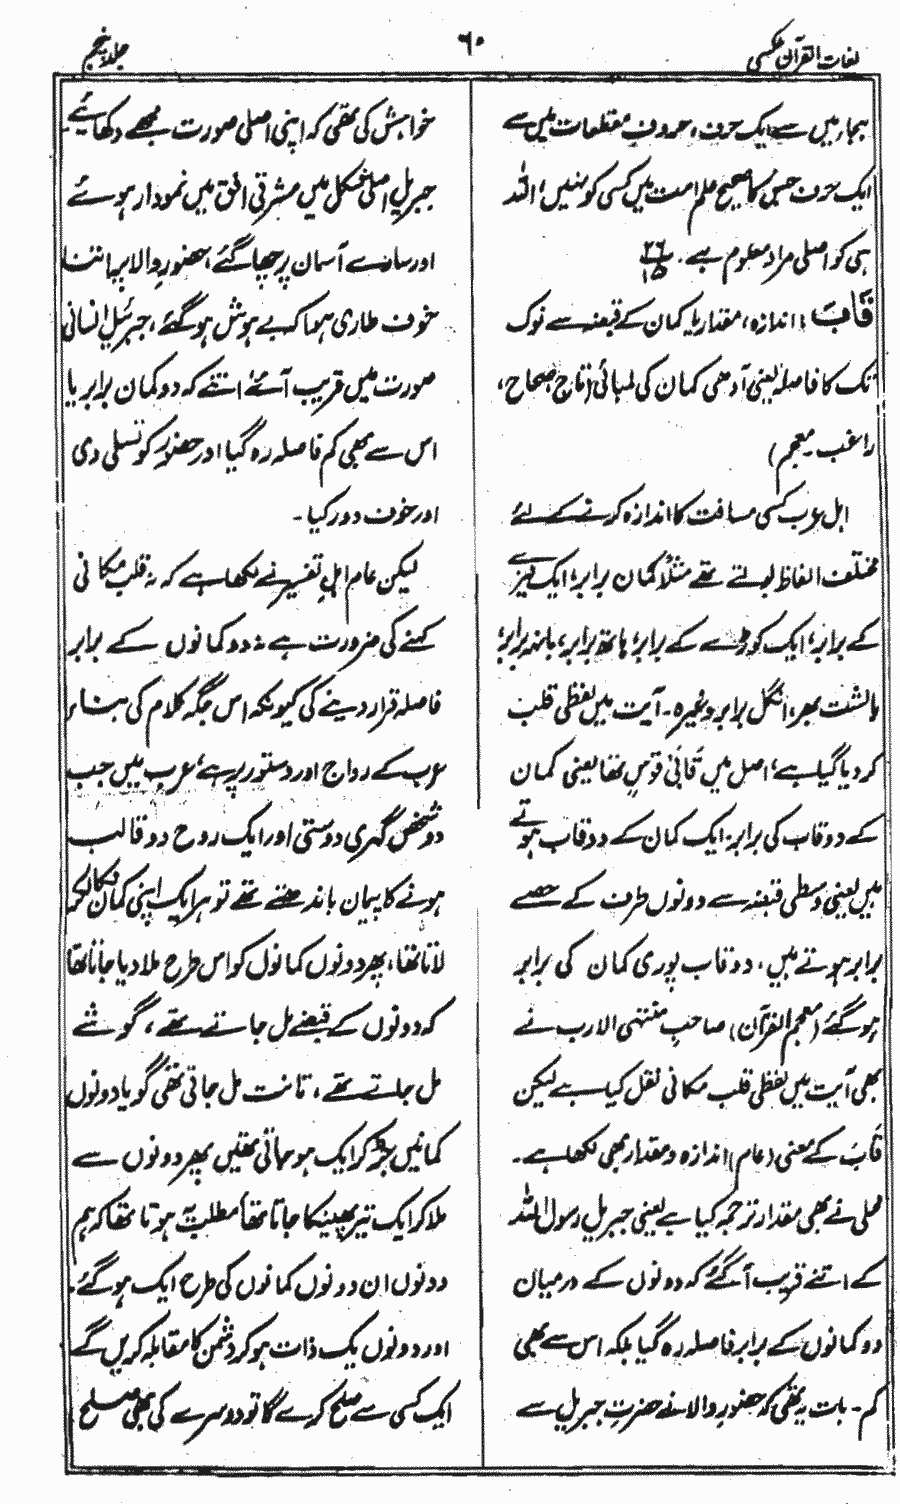 لغات القرآن عکسی
۶۰
جلد پنجم
ہجا میں سے ایک حرف، حروفِ مقطعات میں سے
ایک حرف جس کا صحیح علم امت میں کسی کو نہیں، اللہ
ہی کو اصلی مراد معلوم ہے۔ ۲۶/۱۵
قَابَ: اندازہ، مقدار یا کمان کے قبضہ سے نوک
تک کا فاصلہ یعنی آدھی کمان کی لمبائی (تاج، صحاح،
راغب۔ معجم)
اہل عرب کسی مسافت کا اندازہ کرنے کے لئے
مختلف الفاظ بولتے تھے مثلاً کمان برابر، ایک نیزے
کے برابر، ایک کوڑے کے برابر، ہاتھ برابر، بانہہ برابر،
بالشت بھر، انگل برابر وغیرہ۔ آیت میں لفظی قلب
کر دیا گیا ہے، اصل میں قَابَیْ قَوْسٍ تھا یعنی کمان
کے دو قاب کی برابر۔ ایک کمان کے دو قاب ہوتے
ہیں یعنی وسطی قبضہ سے دونوں طرف کے حصے
برابر ہوتے ہیں، دو قاب پوری کمان کی برابر
ہو گئے (معجم القرآن) صاحب منتہی الارب نے
بھی آیت میں لفظی قلب مکانی نقل کیا ہے لیکن
قابَ کے معنی (عام) اندازہ و مقدار بھی لکھا ہے۔
محلی نے بھی مقدار ترجمہ کیا ہے یعنی جبریل رسول اللہ
کے اتنے قریب آ گئے کہ دونوں کے درمیان
دو کمانوں کے برابر فاصلہ رہ گیا بلکہ اس سے بھی
کم۔ بات یہ تھی کہ حضور والا نے حضرت جبریل سے
خواہش کی تھی کہ اپنی اصلی صورت مجھے دکھائیے
جبریل اصلی شکل میں مشرقی افق میں نمودار ہوئے
اور سارے آسمان پر چھا گئے، حضورِ والا پر اتنا
خوف طاری ہوا کہ بے ہوش ہو گئے، جبرئیل انسانی
صورت میں قریب آئے، اتنے کہ دو کمان برابر یا
اس سے بھی کم فاصلہ رہ گیا اور حضور کو تسلی دی
اور خوف دور کیا۔
لیکن عام اہلِ تفسیر نے لکھا ہے کہ نہ قلب مکانی
کہنے کی ضرورت ہے نہ دو کمانوں کے برابر
فاصلہ قرار دینے کی کیونکہ اس جگہ کلام کی بناء
عرب کے رواج اور دستور پر ہے، عرب میں جب
دو شخص گہری دوستی اور ایک روح دو قالب
ہونے کا پیمان باندھتے تھے تو ہر ایک اپنی کمان نکال کر
لاتا تھا، پھر دونوں کمانوں کو اس طرح ملا دیا جاتا تھا
کہ دونوں کے قبضے مل جاتے تھے، گوشے
مل جاتے تھے، تانت مل جاتی تھی گویا دونوں
کمانیں جڑ کر ایک ہو جاتی تھیں پھر دونوں سے
ملا کر ایک تیر پھینکا جاتا تھا، مطلب یہ ہوتا تھا کہ ہم
دونوں ان دونوں کمانوں کی طرح ایک ہو گئے۔
اور دونوں یک ذات ہو کر دشمن کا مقابلہ کریں گے
ایک کسی سے صلح کرے گا تو دوسرے کی بھی صلح